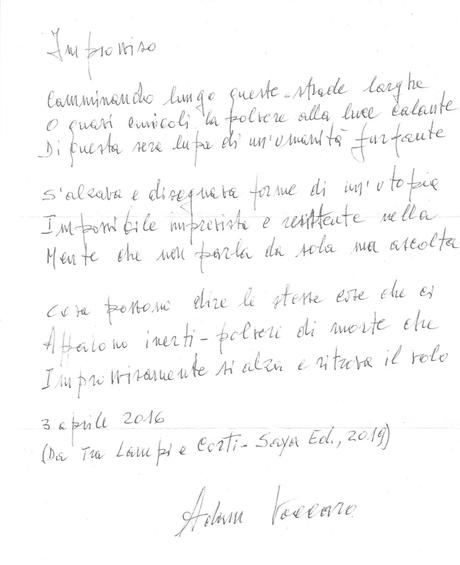 Improvviso
Camminando lungo queste strade larghe
O quasi cunicoli la polvere alla luce calante
Di questa sera lupa di un'umanità furfante
S'alzava e disegnava forme di un'utopia
Impossibile imprevista e resistente nella
Mente che non parla da sola ma ascolta
Cosa possono dire le stesse cose che ci
Appaiono inerti - polveri di morte che
Improvvisamente si alza e ritrova il volo
3 aprile 2016
(Da Tra Lampi e Corti - Saya Ed., 2019)
Adam Vaccaro